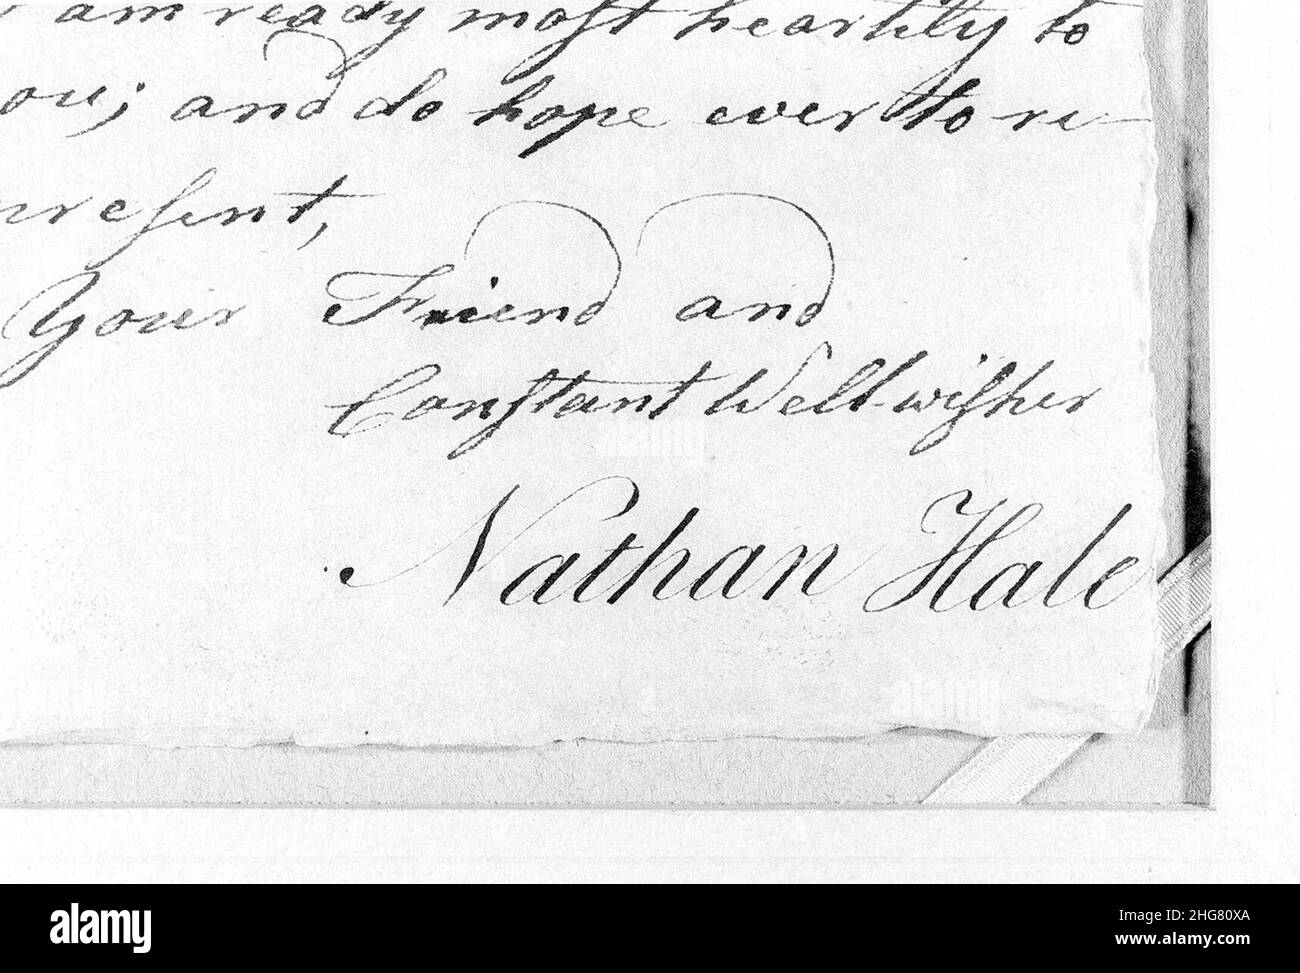 am ready most heartily to
ou; and do hope ever to re-
present,
Your Friend and
Constant Well-wisher
Nathan Hale
alamy
alamy
alamy
Image ID: 2HG80XA
www.alamy.com